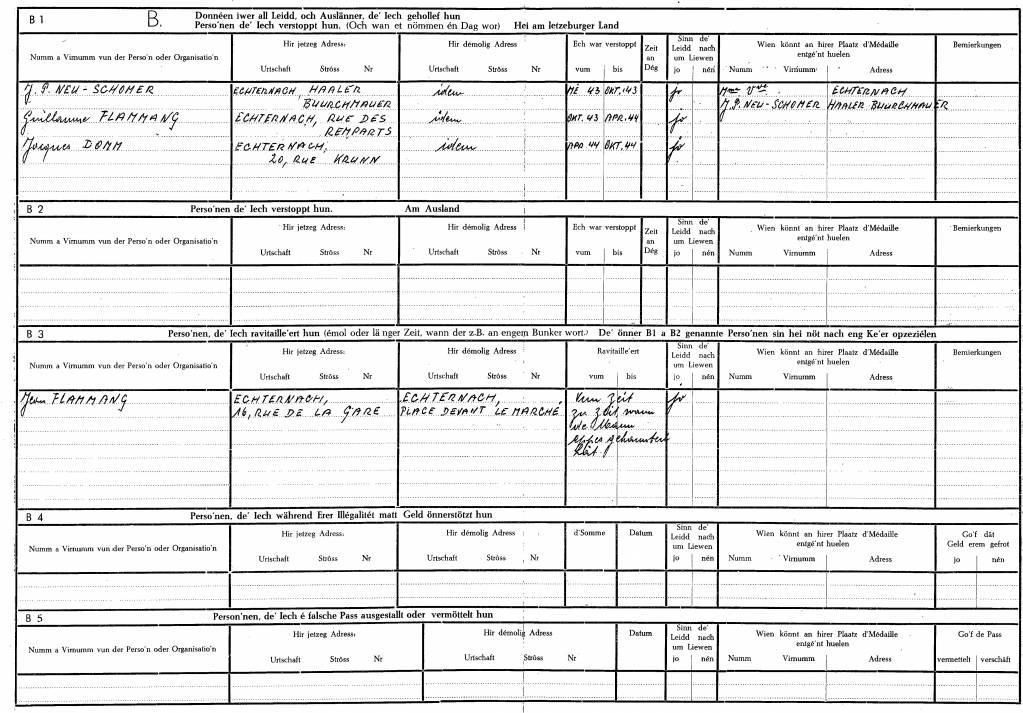 B 1
B.
Donnéen iwer all Leidd, och Auslänner, de' Iech gehollef hun
Perso'nen de' Iech verstoppt hun. (Och wan et nömmen én Dag wor) Hei am letzeburger Land
Numm a Virnumm vun der Perso'n oder Organisatio'n
Hir jetzeg Adress:
Urtschaft Ströss Nr
Hir démolig Adress
Urtschaft Ströss Nr
Ech war verstoppt
vum bis
Zeit
an
Dég
Sinn de'
Leidd nach
um Liewen
jo nén
Wien könnt an hirer Plaatz d'Médaille
entgé'nt huelen
Numm Virnumm Adress
Bemierkungen
J.P. NEU-SCHOMER ECHTERNACH, HAALER idem ME 43 OKT. 43 jo Mme Vve ECHTERNACH
BUURCHMAUER J.P. NEU-SCHOMER HAALER BUURCHMAUER
Guillaume FLAMMANG ECHTERNACH, RUE DES idem OKT. 43 APR. 44 jo
REMPARTS
Jacques DOMM ECHTERNACH, idem APR. 44 OKT. 44 jo
20, RUE KRUNN
B 2
Perso'nen de' Iech verstoppt hun. Am Ausland
Numm a Virnumm vun der Perso'n oder Organisatio'n
Hir jetzeg Adress:
Urtschaft Ströss Nr
Hir démolig Adress
Urtschaft Ströss Nr
Ech war verstoppt
vum bis
Zeit
an
Dég
Sinn de'
Leidd nach
um Liewen
jo nén
Wien könnt an hirer Plaatz d'Médaille
entgé'nt huelen
Numm Virnumm Adress
Bemierkungen
B 3
Perso'nen, de' Iech ravitaille'ert hun (émol oder lä nger Zeit, wann der z.B. an engem Bunker wort.) De' önner B1 a B2 genannte Perso'nen sin hei nöt nach eng Ke'er opzeziélen
Numm a Virnumm vun der Perso'n oder Organisatio'n
Hir jetzeg Adress:
Urtschaft Ströss Nr
Hir démolig Adress
Urtschaft Ströss Nr
Ravitaille'ert
vum bis
Sinn de'
Leidd nach
um Liewen
jo nén
Wien könnt an hirer Plaatz d'Médaille
entgé'nt huelen
Numm Virnumm Adress
Bemierkungen
Jean FLAMMANG ECHTERNACH, ECHTERNACH, Vun Zeit jo
16, RUE DE LA GARE PLACE DEVANT LE MARCHÉ zu Zeit, wann
B 4
Perso'nen, de' Iech während Erer Illégalitét matt Geld önnerstötzt hun
Numm a Virnumm vun der Perso'n oder Organisatio'n
Hir jetzeg Adress:
Urtschaft Ströss Nr
Hir démolig Adress
Urtschaft Ströss Nr
d'Somme
Datum
Sinn de'
Leidd nach
um Liewen
jo nén
Wien könnt an hirer Plaatz d'Médaille
entgé'nt huelen
Numm Virnumm Adress
Go'f dât
Geld erem gefrot
jo nén
B 5
Person'nen, de' Iech é falsche Pass ausgestallt oder vermöttelt hun
Numm a Virnumm vun der Perso'n oder Organisatio'n
Hir jetzeg Adress:
Urtschaft Ströss Nr
Hir démolig Adress
Urtschaft Ströss Nr
Datum
Sinn de'
Leidd nach
um Liewen
jo nén
Wien könnt an hirer Plaatz d'Médaille
entgé'nt huelen
Numm Virnumm Adress
Go'f de Pass
vermettelt verschäft